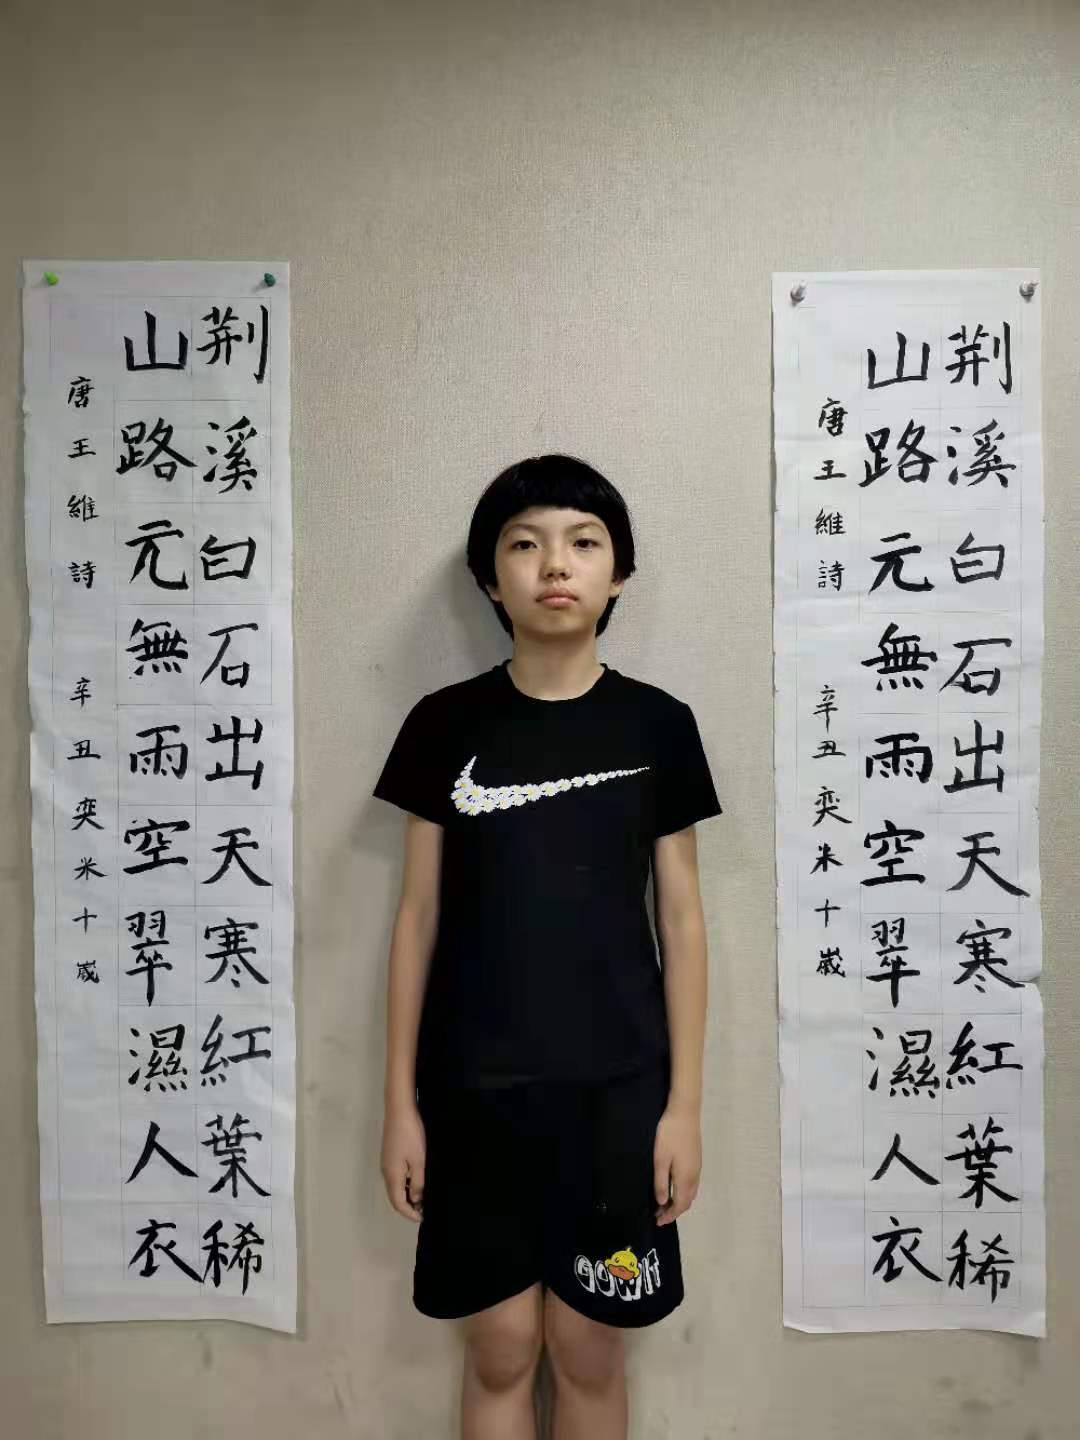 荆溪白石出天寒紅葉稀
山路元無雨空翠濕人衣
唐王維詩 辛丑奕米十歲
荆溪白石出天寒紅葉稀
山路元無雨空翠濕人衣
唐王維詩 辛丑奕米十歲